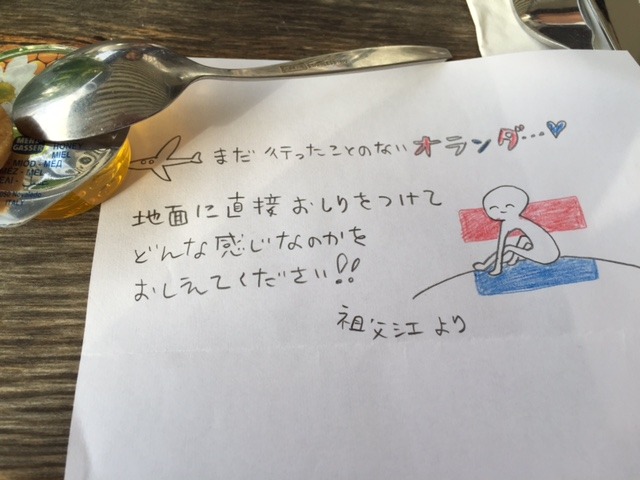 まだ行ったことのないオランダ…
地面に直接おしりをつけて
どんな感じなのかを
おしえてください!!
祖父江より
HONEY
MIEL
MIOD - МЕД